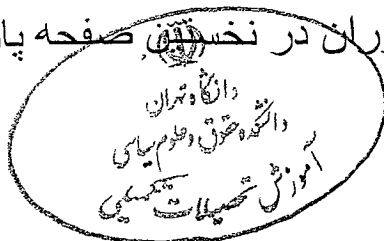 وران در نخستین صفحه پا
دانشگاه تهران
دانشکده حقوق و علوم سیاسی
آموزش تحصیلات تکمیلی